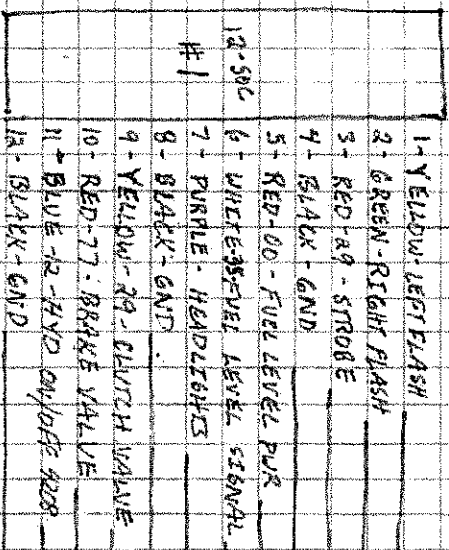 12-SOC
#1
1-YELLOW-LEFT FLASH
2-GREEN-RIGHT FLASH
3-RED-29-STROBE
4-BLACK-GND
5-RED-00-FUEL LEVEL PWR
6-WHITE-35-FUEL LEVEL SIGNAL
7-PURPLE-HEADLIGHTS
8-BLACK-GND
9-YELLOW-29-CLUTCH VALVE
10-RED-77-BRAKE VALVE
11-BLUE-12-HYD ON/OFF
12-BLACK-GND